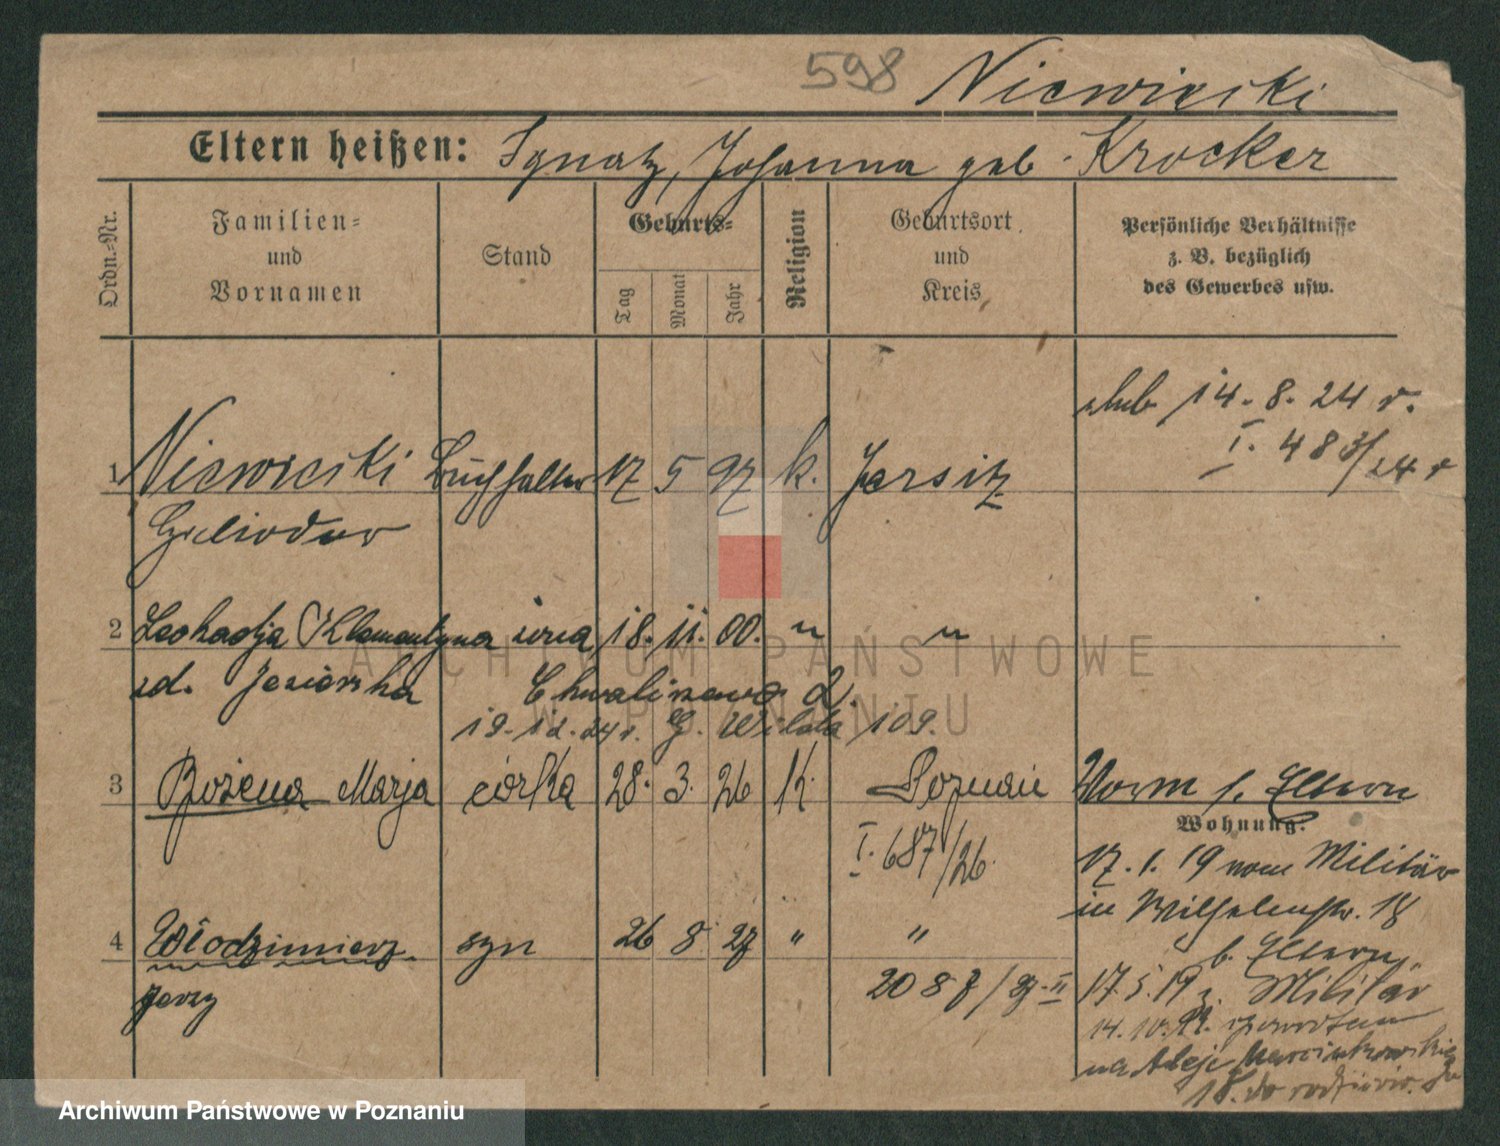 598
Niewieski
Eltern heißen: Ignatz, Johanna geb. Krocker
Ordn.-Nr.
Familien-
und
Vornamen
Stand
Geburts-
Tag
Monat
Jahr
Religion
Geburtsort
und
Kreis
Persönliche Verhältnisse
z. B. bezüglich
des Gewerbes usw.
ślub 14. 8. 24 r.
I. 483/24 r
1 Niewieski Buchhalter 17 5 97 k. Jersitz
Heliodor
2 Leokadja Klementyna żona 18. 11. 00. " "
zd. Jezierska
19. 12. 24 r. G. Wilda 109.
3 Bożena Marja córka 28. 3. 26 K. Poznań
I. 687/26.
Vorm s. Eltern
Wohnung:
17. 1. 19 vom Militär
in Wilhelmstr. 18
b. Eltern,
4 Włodzimierz syn 26 8 27 " "
Jerzy
2087/27 II
17. 5. 19 z. Militär
na Aleje Marcinkowskiego
18. do rodziców
ARCHIWUM PAŃSTWOWE
W POZNANIU
Archiwum Państwowe w Poznaniu